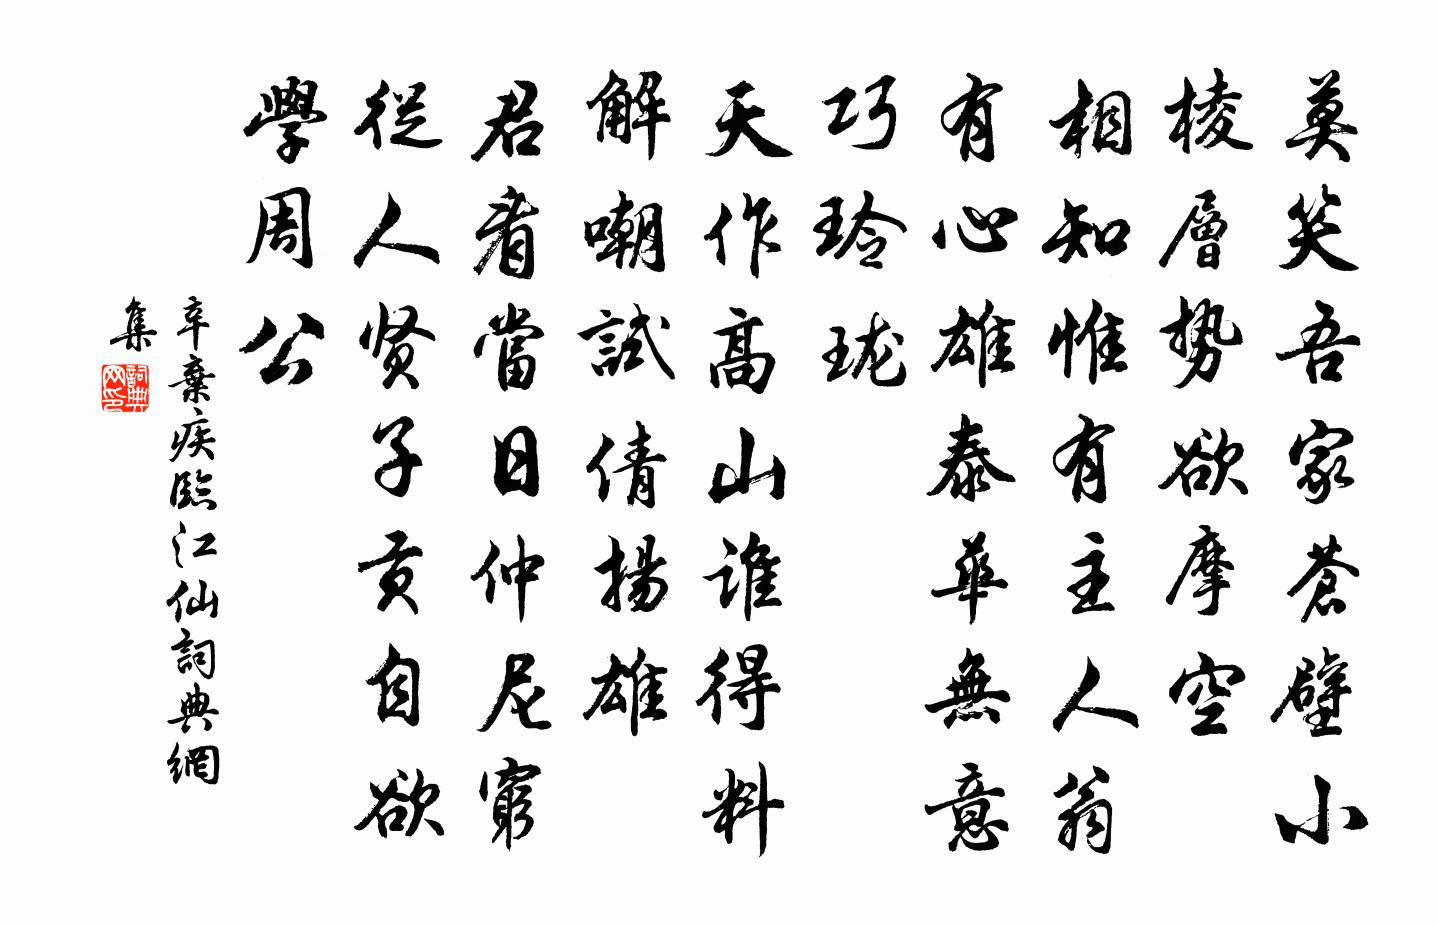 莫笑吾家蒼壁小
棱層勢欲摩空
相知惟有主人翁
有心雄泰華無意
巧玲珑
天作高山誰得料
解嘲試倩揚雄
君看當日仲尼窮
從人贤子贡自欲
學周公
辛棄疾臨江仙詞典網
集
詞典网印